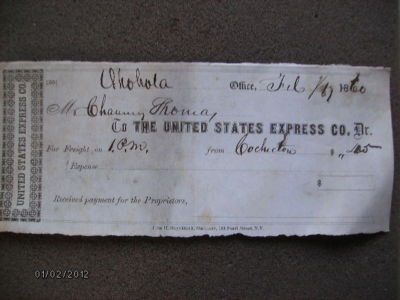 UNITED STATES EXPRESS CO.
Office, Feb 1860
Mr Chauncy Thomas
To THE UNITED STATES EXPRESS CO. Dr.
For Freight, on 1. P.M. from Cochecton $ „
" Expense $
Received payment for the Proprietors,
Pearl Street, N.Y.
01/02/2012